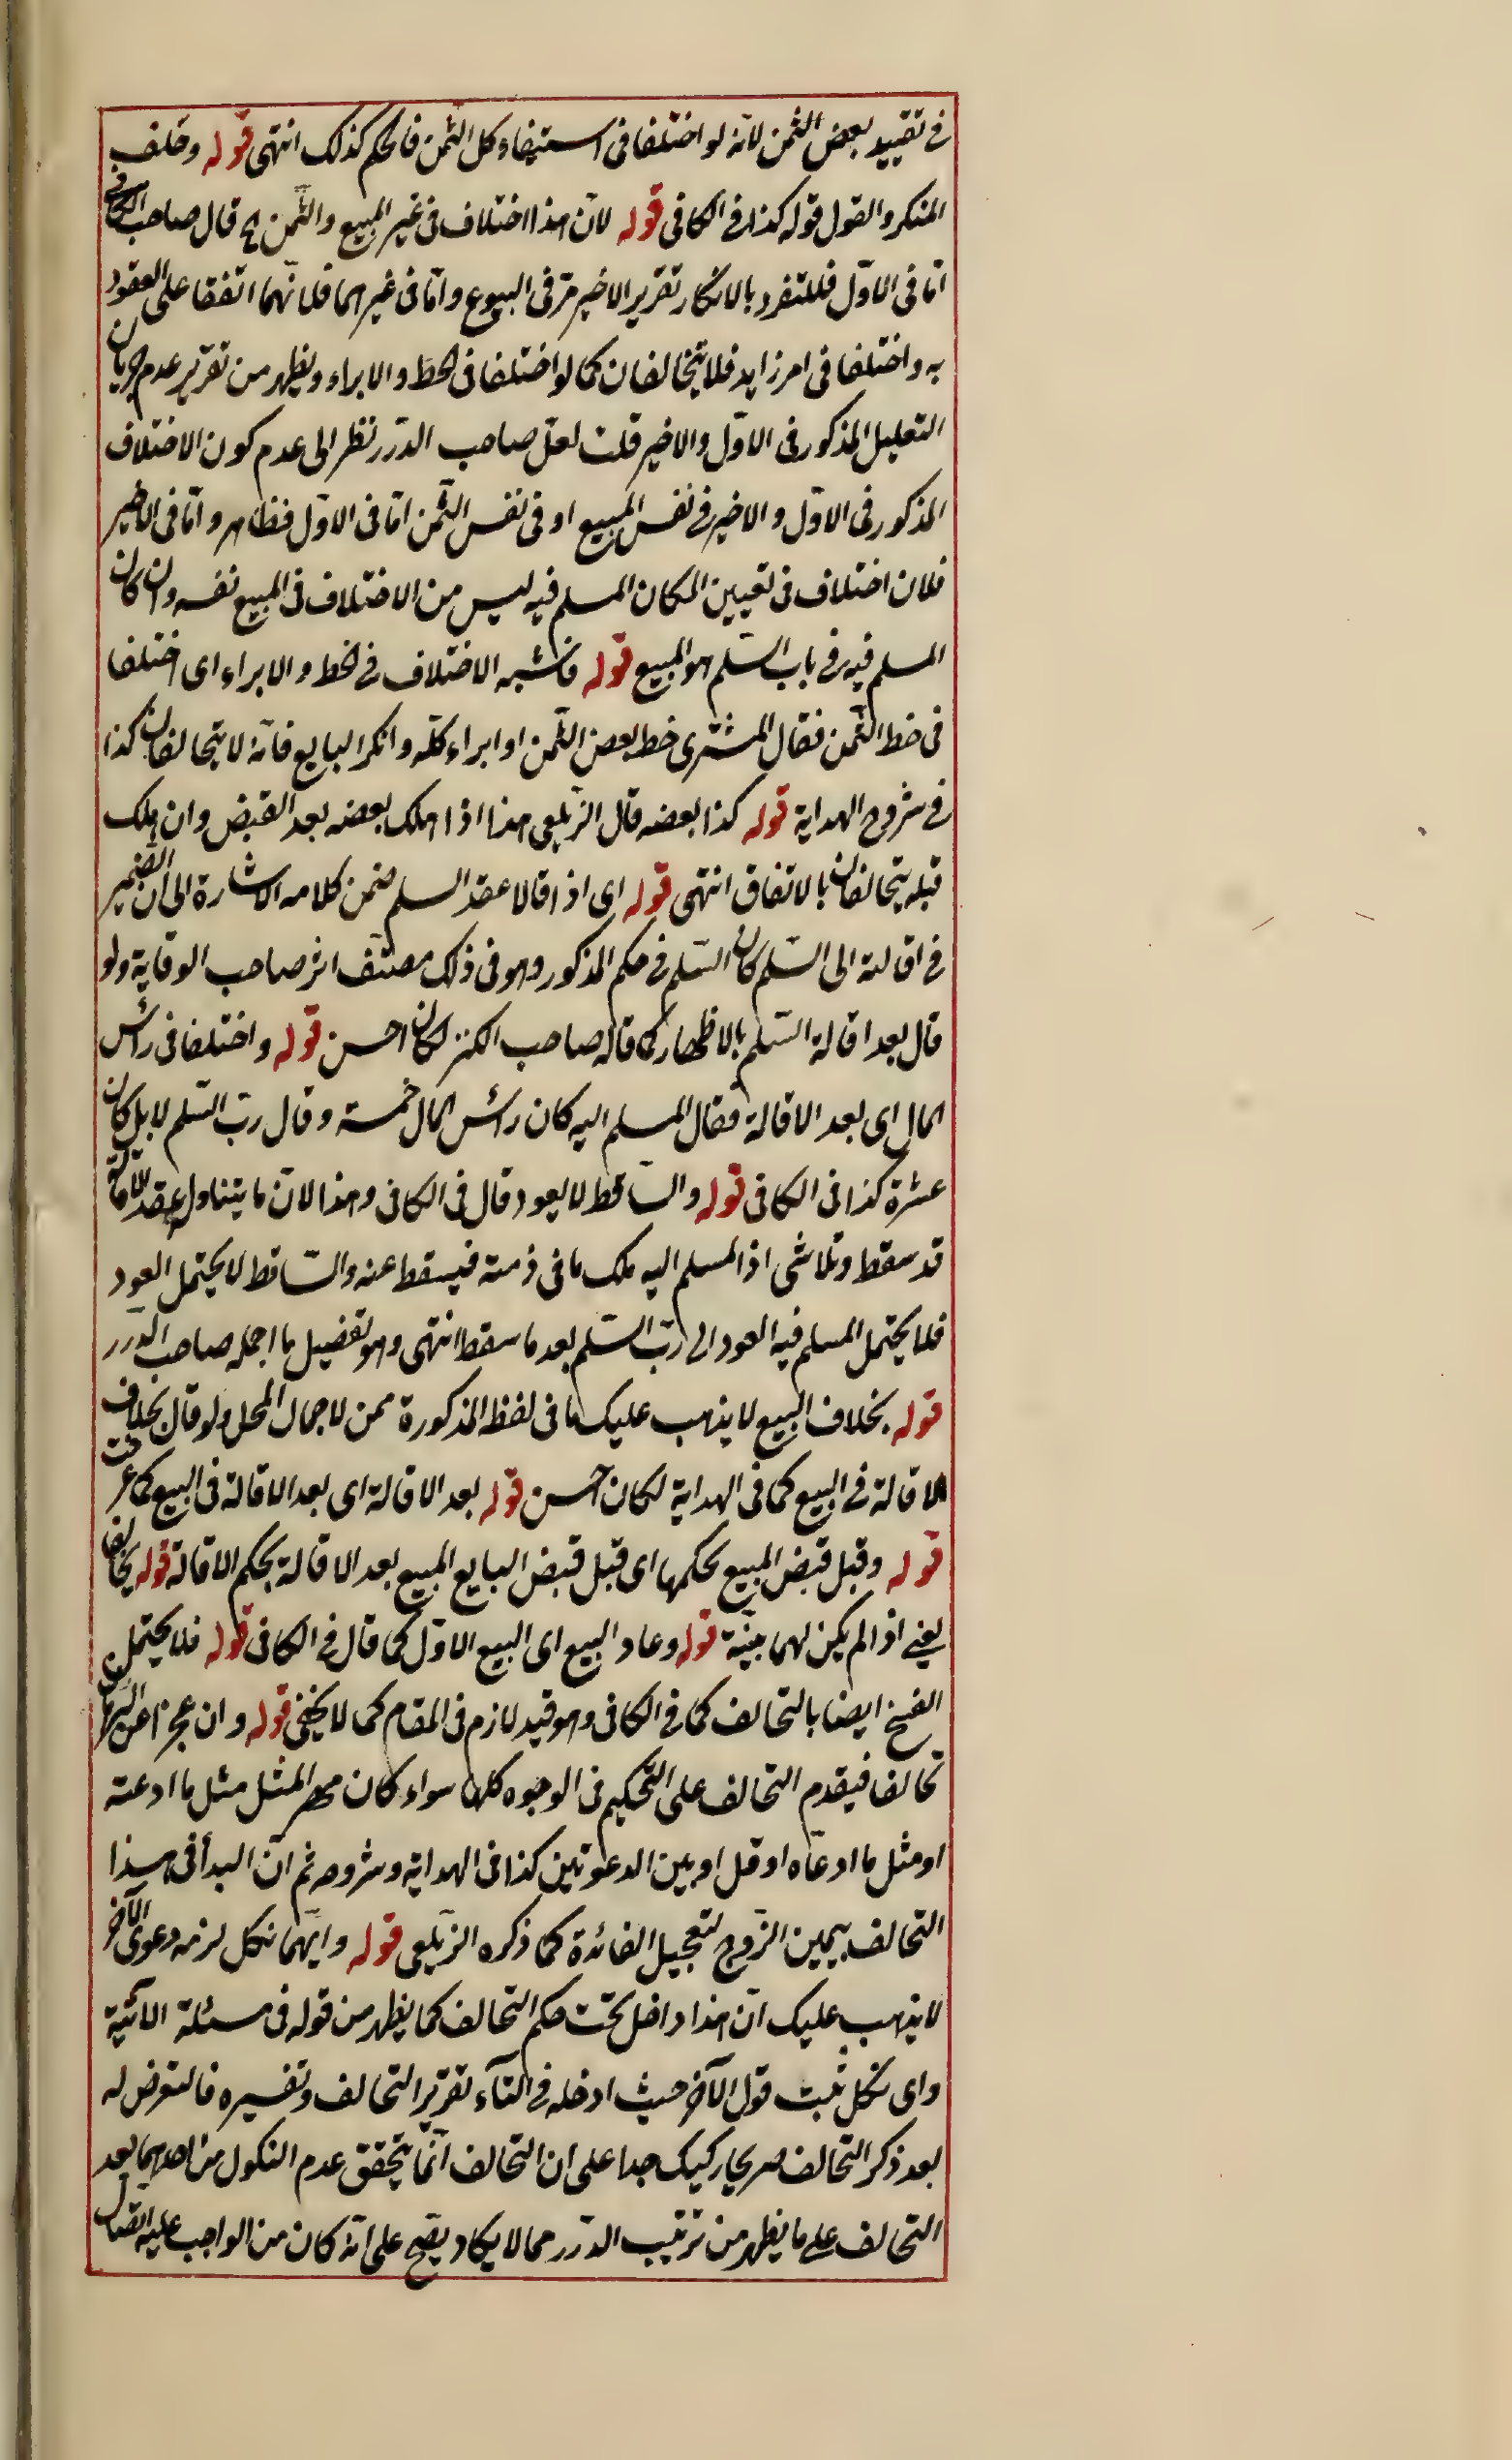 فى تقييد بعض الثمن لانه لو اختلفا فى استيفاء كل الثمن فالحكم كذلك انتهى قوله وحلف
المنكر والقول قوله كذا فى الكافى قوله لان هذا اختلاف فى غير المبيع والثمن ح قال صاحب الكافى
امّا فى الاوّل فللتفرد بالانكار تقرير الاخير مرّ فى البيوع وامّا فى غيرهما فلانهما اتفقا على العقود
به واختلفا فى امر زايد فلا يتحالفان كما لو اختلفا فى الحط والابراء ويظهر من تقرير عدم جريان
التعليل المذكور فى الاوّل والاخير قلت لعلّ صاحب الدّرر نظر الى عدم كون الاختلاف
المذكور فى الاوّل والاخير فى نفس المبيع او فى نفس الثّمن امّا فى الاوّل فظاهر وامّا فى الاخير
فلان اختلاف فى تعيين المكان المسلم فيه ليس من الاختلاف فى المبيع نفسه وان كان
المسلم فيه فى باب السّلم هو المبيع قوله فاشبه الاختلاف فى الحط والابراء اى اختلفا
فى حط الثّمن فقال المشترى حط بعض الثّمن او ابراء كلّه وانكر البايع فانّه لا يتحالفان كذا
فى شروح الهداية قوله كذا بعضه قال الزّيلعى هذا اذا هلك بعضه بعد القبض وان هلك
قبله يتحالفان بالاتفاق انتهى قوله اى اذا قالا عقد السلم ضمن كلامه الاشارة الى ان الضمير
فى اقالته الى السّلم كان السّلم فى حكم المذكور وهو فى ذلك مصنّف اثر صاحب الوقاية ولو
قال بعد اقالة السّلم بالاظهار كما قاله صاحب الكنز لكان احسن قوله واختلفا فى رأس
المال اى بعد الاقالة فقال المسلم اليه كان رأس المال خمسة وقال ربّ السّلم لا بل كان
عشرة كذا فى الكافى قوله والسّاقط لا يعود قال فى الكافى وهذا لانّ ما يتناوله عقد الاقالة
قد سقط وتلاشى اذ المسلم اليه ملك ما فى ذمته فيسقط عنه والسّاقط لا يحتمل العود
فلا يحتمل المسلم فيه العود الى ربّ السّلم بعد ما سقط انتهى وهو تفصيل ما اجمله صاحب الدّرر
قوله بخلاف البيع لا يذهب عليك ما فى لفظ المذكورة ممن لاجمال المحل ولو قال بخلاف
الاقالة فى البيع كما فى الهداية لكان احسن قوله بعد الاقالة اى بعد الاقالة فى البيع كما عرفت
قوله وقبل قبض المبيع بحكمها اى قبل قبض البايع المبيع بعد الاقالة بحكم الاقالة قوله تحالفا
يعنى اذا لم يكن لهما بيّنة قوله وعاد البيع اى البيع الاوّل كما قال فى الكافى قوله فلا يحتمل
الفسخ ايضا بالتحالف كما فى الكافى وهو قيد لازم فى المقام كما لا يخفى قوله وان عجزا عن البرهان
تحالفا فيقدم التحالف على التّحكيم فى الوجوه كلها سواء كان مهر المثل مثل ما ادعته
او مثل ما ادعاه او قل او بين الدعوتين كذا فى الهداية وشروحه ثم انّ البدأ فى هذا
التحالف بيمين الزّوج لتعجيل الفائدة كما ذكره الزّيلعى قوله وايّهما نكل لزمه دعوى الآخر
لا يذهب عليك انّ هذا داخل تحت حكم التحالف كما يظهر من قوله فى مسئلة الآتية
واى نكل ثبت قول الآخر حيث ادخله فى اثناء تقرير التحالف وتفسيره فالتعرض له
بعد ذكر التحالف صريحا ركيك جدا على ان التحالف انّما يتحقق عدم النكول من احدهما بعد
التحالف على ما يظهر من ترتيب الدّرر مما لا يكاد يصحّ على انّه كان من الواجب عليه